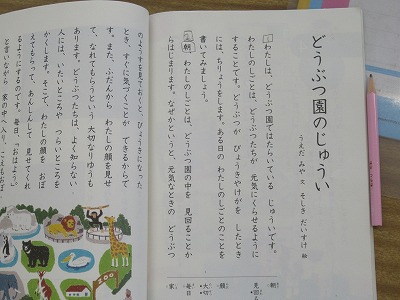 どうぶつ園のじゅうい
うえだ みや 文 そしき だいすけ 絵
1 わたしは、どうぶつ園ではたらいている じゅういです。
わたしのしごとは、どうぶつたちが 元気にくらせるように
することです。どうぶつが びょうきやけがを したとき
には、ちりょうをします。ある日の わたしのしごとのことを
書いてみましょう。
2 朝、わたしのしごとは、どうぶつ園の中を 見回ることか
らはじまります。なぜかというと、元気なときの どうぶつ
のようすを見ておくと、びょうきになった
とき、すぐに気づくことが できるからで
す。また、ふだんから わたしの顔を見せ
て、なれてもらうという 大切なりゆうも
あります。どうぶつたちは、よく知らない
人には、いたいところや つらいところを
かくします。そこで、わたしの顔を おぼ
えてもらって、あんしんして 見せてくれ
るようにするのです。毎日、「おはよう。」
と言いながら 家の中へ入り、こえもおぼ
朝
見回
顔
大切
毎日
家
ZOO